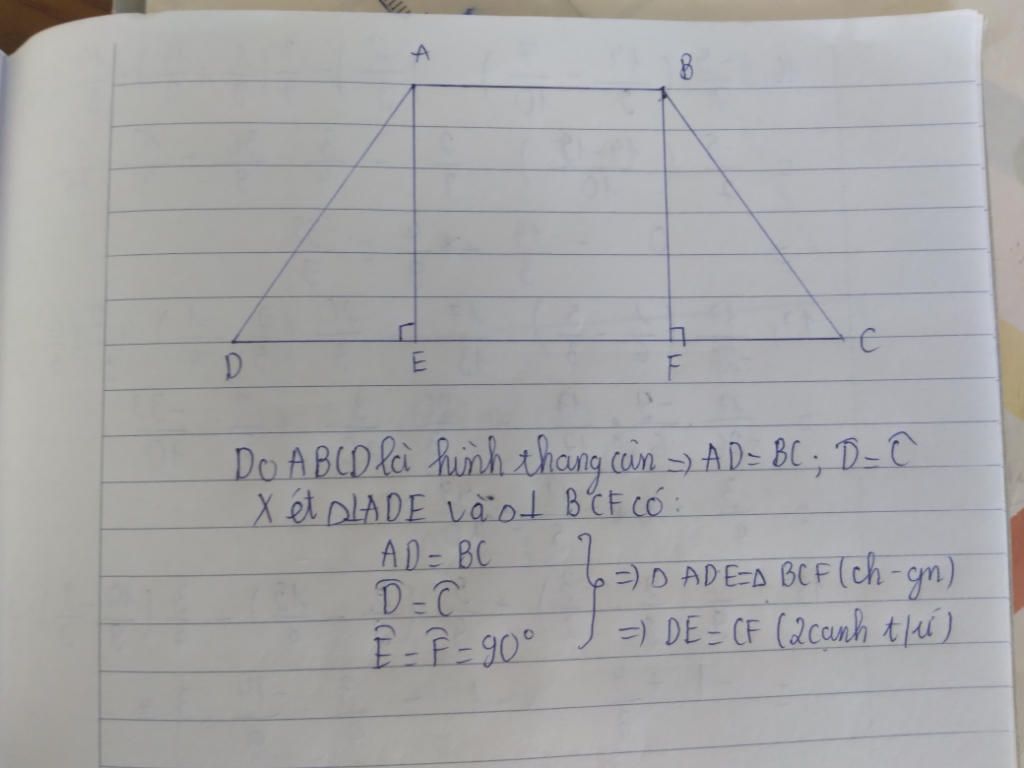 A
B
D
E
F
C
Do ABCD là hình thang cân => AD = BC; D̂ = Ĉ
Xét Δ⊥ADE và Δ⊥ BCF có:
AD = BC
D̂ = Ĉ
Ê = F̂ = 90°
=> Δ ADE = Δ BCF (ch - gn)
=> DE = CF (2 cạnh t/ư)